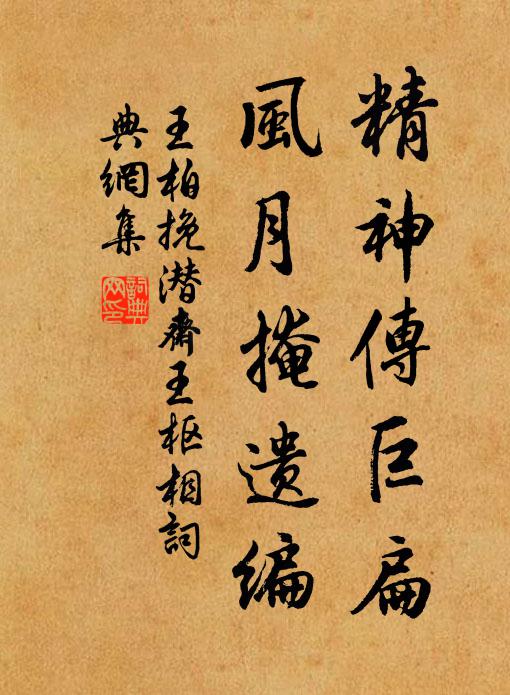 精神傳巨扁
風月掩遗编
王柏挽潜齋王枢相詞
典網集
詞典网印